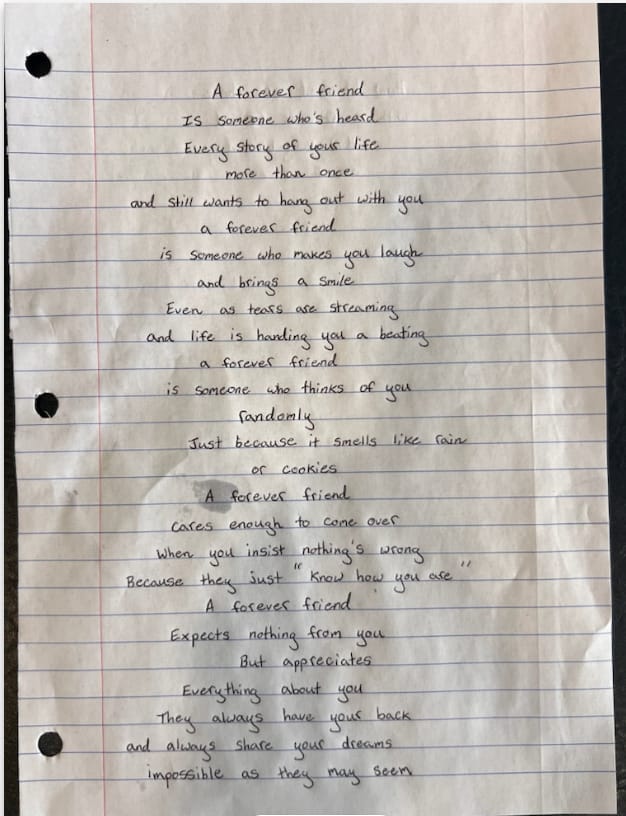 A forever friend
Is Someone who's heard
Every story of your life
more than once
and still wants to hang out with you
a forever friend
is someone who makes you laugh
and brings a smile
Even as tears are streaming
and life is handing you a beating
a forever friend
is someone who thinks of you
randomly
Just because it smells like rain
or cookies
A forever friend
cares enough to come over
When you insist nothing's wrong
Because they just "know how you are"
A forever friend
Expects nothing from you
But appreciates
Everything about you
They always have your back
and always share your dreams
impossible as they may seem